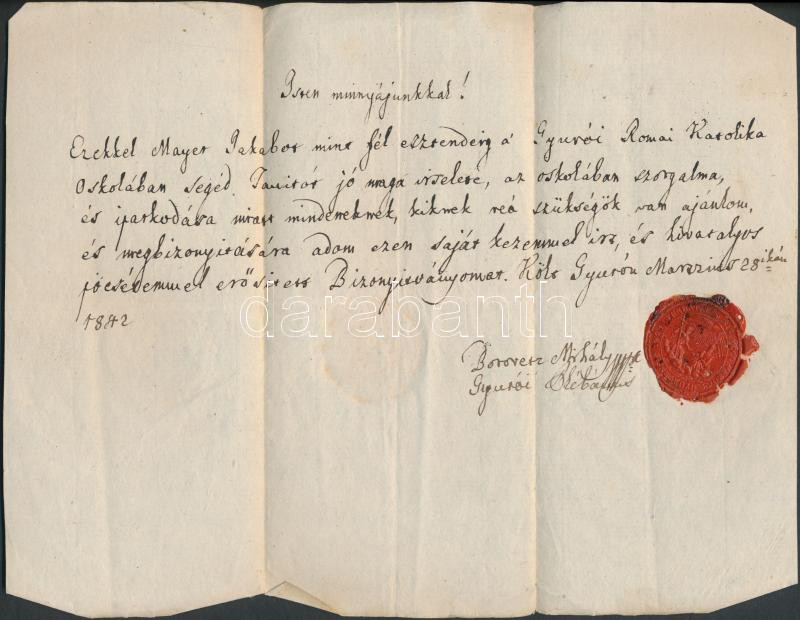 Isten minnyájunkkal!
Ezekkel Mayer Jakabot mint fél esztendeig a' Gyurói Romai Katolika
Oskolában segéd Tanitót jó maga viseleté, az oskolában szorgalma,
és iparkodása miatt mindeneknek, kiknek reá szükségök van ajánlom,
és megbizonyitására adom ezen saját kezemmel irt, és hivatalyos
pöcsétemmel erősitett Bizonyitványomat. Költ Gyurón Marczius 28ikán
1842
darabanth
Borovetz Mihály mk
Gyurói Plébánus